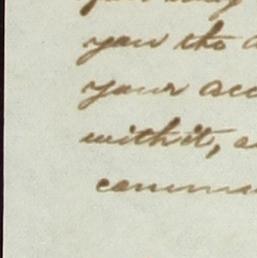 you the
your acc
with it, a
comma